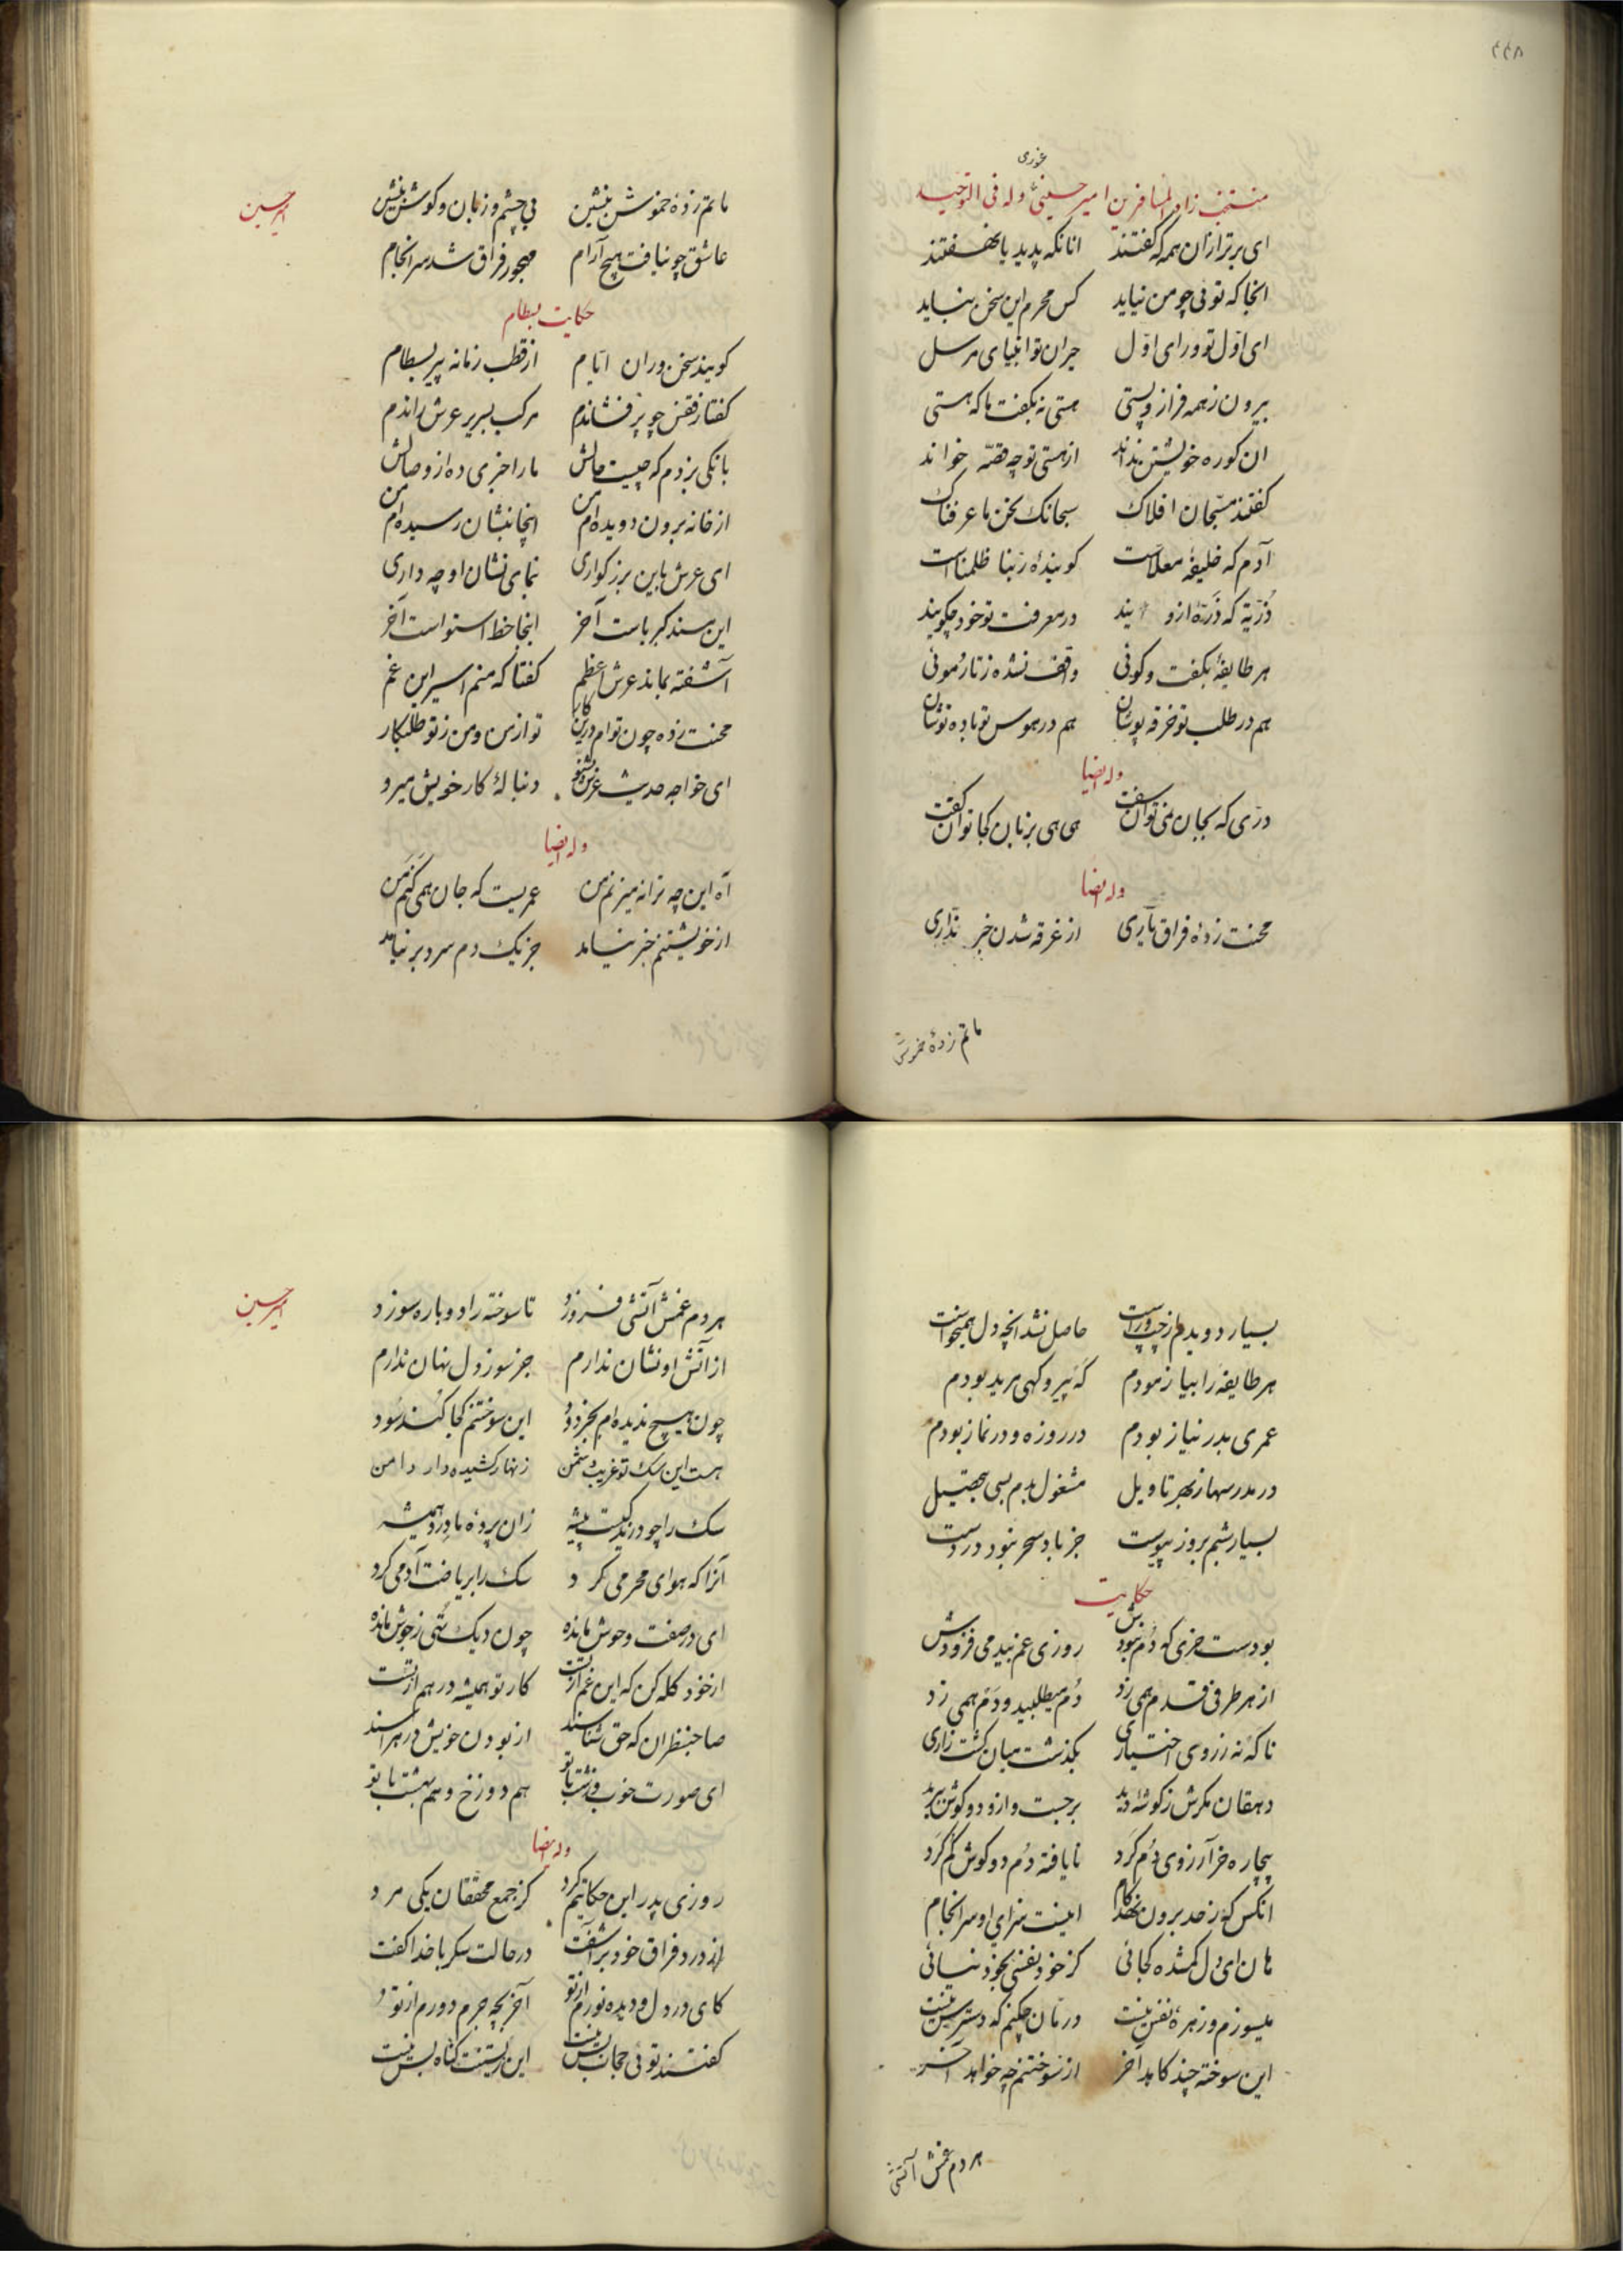 ۴۴۸
غوری
منتخب زاد المسافرین امیر حسینی وله فی التوحید
ای برتر ازان همه که گفتند انانکه پدید یا نهفتند
انجا که توئی چو من نیاید کس محرم این سخن نیاید
ای اوّل تو ورای اوّل حیران تو انبیای مرسل
بیرون ز همه فراز و پستی هستی نه بگفت ما که هستی
ان کوره خویشتن نداند از هستی تو چه قصّه خواند
گفتند مسبّحان افلاک سبحانک نحن ما عرفناک
آدم که خلیفهٔ معلاست گویندهٔ ربّنا ظلمناست
ذُرّیة که ذَرّهٔ ازو یند در معرفت تو خود چگویند
هر طایفهٔ بگفت و گوئی واقف نشده ز تار موئی
هم در طلب تو خرقه پوشان هم در هوس تو باده نوشان
وله ایضا
درّی که بجان نمی توان سفت هی هی بزبان کجا توان گفت
وله ایضا
محنت زدهٔ فراق یاری از غرقه شدن خبر نداری
ماتم زدهٔ خموش
امیر حسین
ماتم زدهٔ خموش بنشین بی چشم و زبان و گوش بنشین
عاشق چو نیافت هیچ آرام مهجور فراق شد سرانجام
حکایت بسطام
گویند سخن وران ایّام از قطب زمانه پیر بسطام
گفتا ز قفس چو پر فشاندم مرکب بسریر عرش راندم
بانگی بزدم که چیست حالش ما را خبری ده از وصالش
از خانه برون دویده‌ام من اینجا بنشان رسیده‌ام من
ای عرش باین بزرگواری بنمای نشان او چه داری
این مسند کبریاست آخر اینجا خط استواست آخر
آشفته بماند عرش اعظم گفتا که منم اسیر این غم
محنت زده چون توام درین کار تو از من و من ز تو طلبکار
ای خواجه حدیث عرش بشنو دنبالهٔ کار خویش میرو
وله ایضا
آه این چه ترانه میزنم من عمریست که جان همی کنم من
از خویشتنم خبر نیامد جز یک دم سرد بر نیامد
بسیار دویدم از چپ و راست حاصل نشد انچه دل همیخواست
هر طایفه را بیازمودم گه پیر و گهی مرید بودم
عمری بدر نیاز بودم در روزه و در نماز بودم
در مدرسها ز بهر تاویل مشغول بدم بسی بتحصیل
بسیار شبم بروز پیوست جز باد سحر نبود در دست
حکایت
بودست خری که دُم نبودش روزی غم بیدمی فزودش
از هر طرفی قدم همی زد دُم میطلبید و دَم همی زد
ناگه نه ز روی اختیاری بگذشت میان کشت زاری
دهقان مگرش ز گوشهٔ دید برجست و ازو دو گوش ببرید
بیچاره خر آرزوی دُم کرد نایافته دُم دو گوش گم کرد
انکس که ز حد برون نهد گام اینست سزای او سرانجام
هان ای دل گمشده کجائی کز خود نفسی بخود نیائی
میسوزم و زهرهٔ نفس نیست درمان چکنم که دسترس نیست
این سوخته چند کاهد آخر از سوختنم چه خواهد آخر
هر دم غمش آتشی
امیر حسین
هر دم غمش آتشی فروزد تا سوخته را دوباره سوزد
از آتش او نشان ندارم جز سوز دل نهان ندارم
چون هیچ ندیده‌ام بجز دود این سوختنم کجا کند سود
هست این سگ تو غریب دشمن زنهار کشیده دار دامن
سگ را چو درندگیست پیشه زان پردهٔ ما درد همیشه
آنرا که هوای محرمی کرد سگ را بریاضت آدمی کرد
ای در صفت وحوش مانده چون دیک تهی ز جوش مانده
از خود گله کن که این غم از تست کار تو همیشه در هم از تست
صاحبنظران که حق شناسند از بودن خویش در هراسند
ای صورت خوب و زشت با تو هم دوزخ و هم بهشت با تو
وله ایضا
روزی پدر این حکایتم کرد کز جمع محققان یکی مرد
از درد فراق خود برآشفت در حالت سکر با خدا گفت
کای در دل و دیده نورم از تو آخر بچه جرم دورم از تو
گفتند توئی حجاب پس نیست این بستنت گناه بس نیست